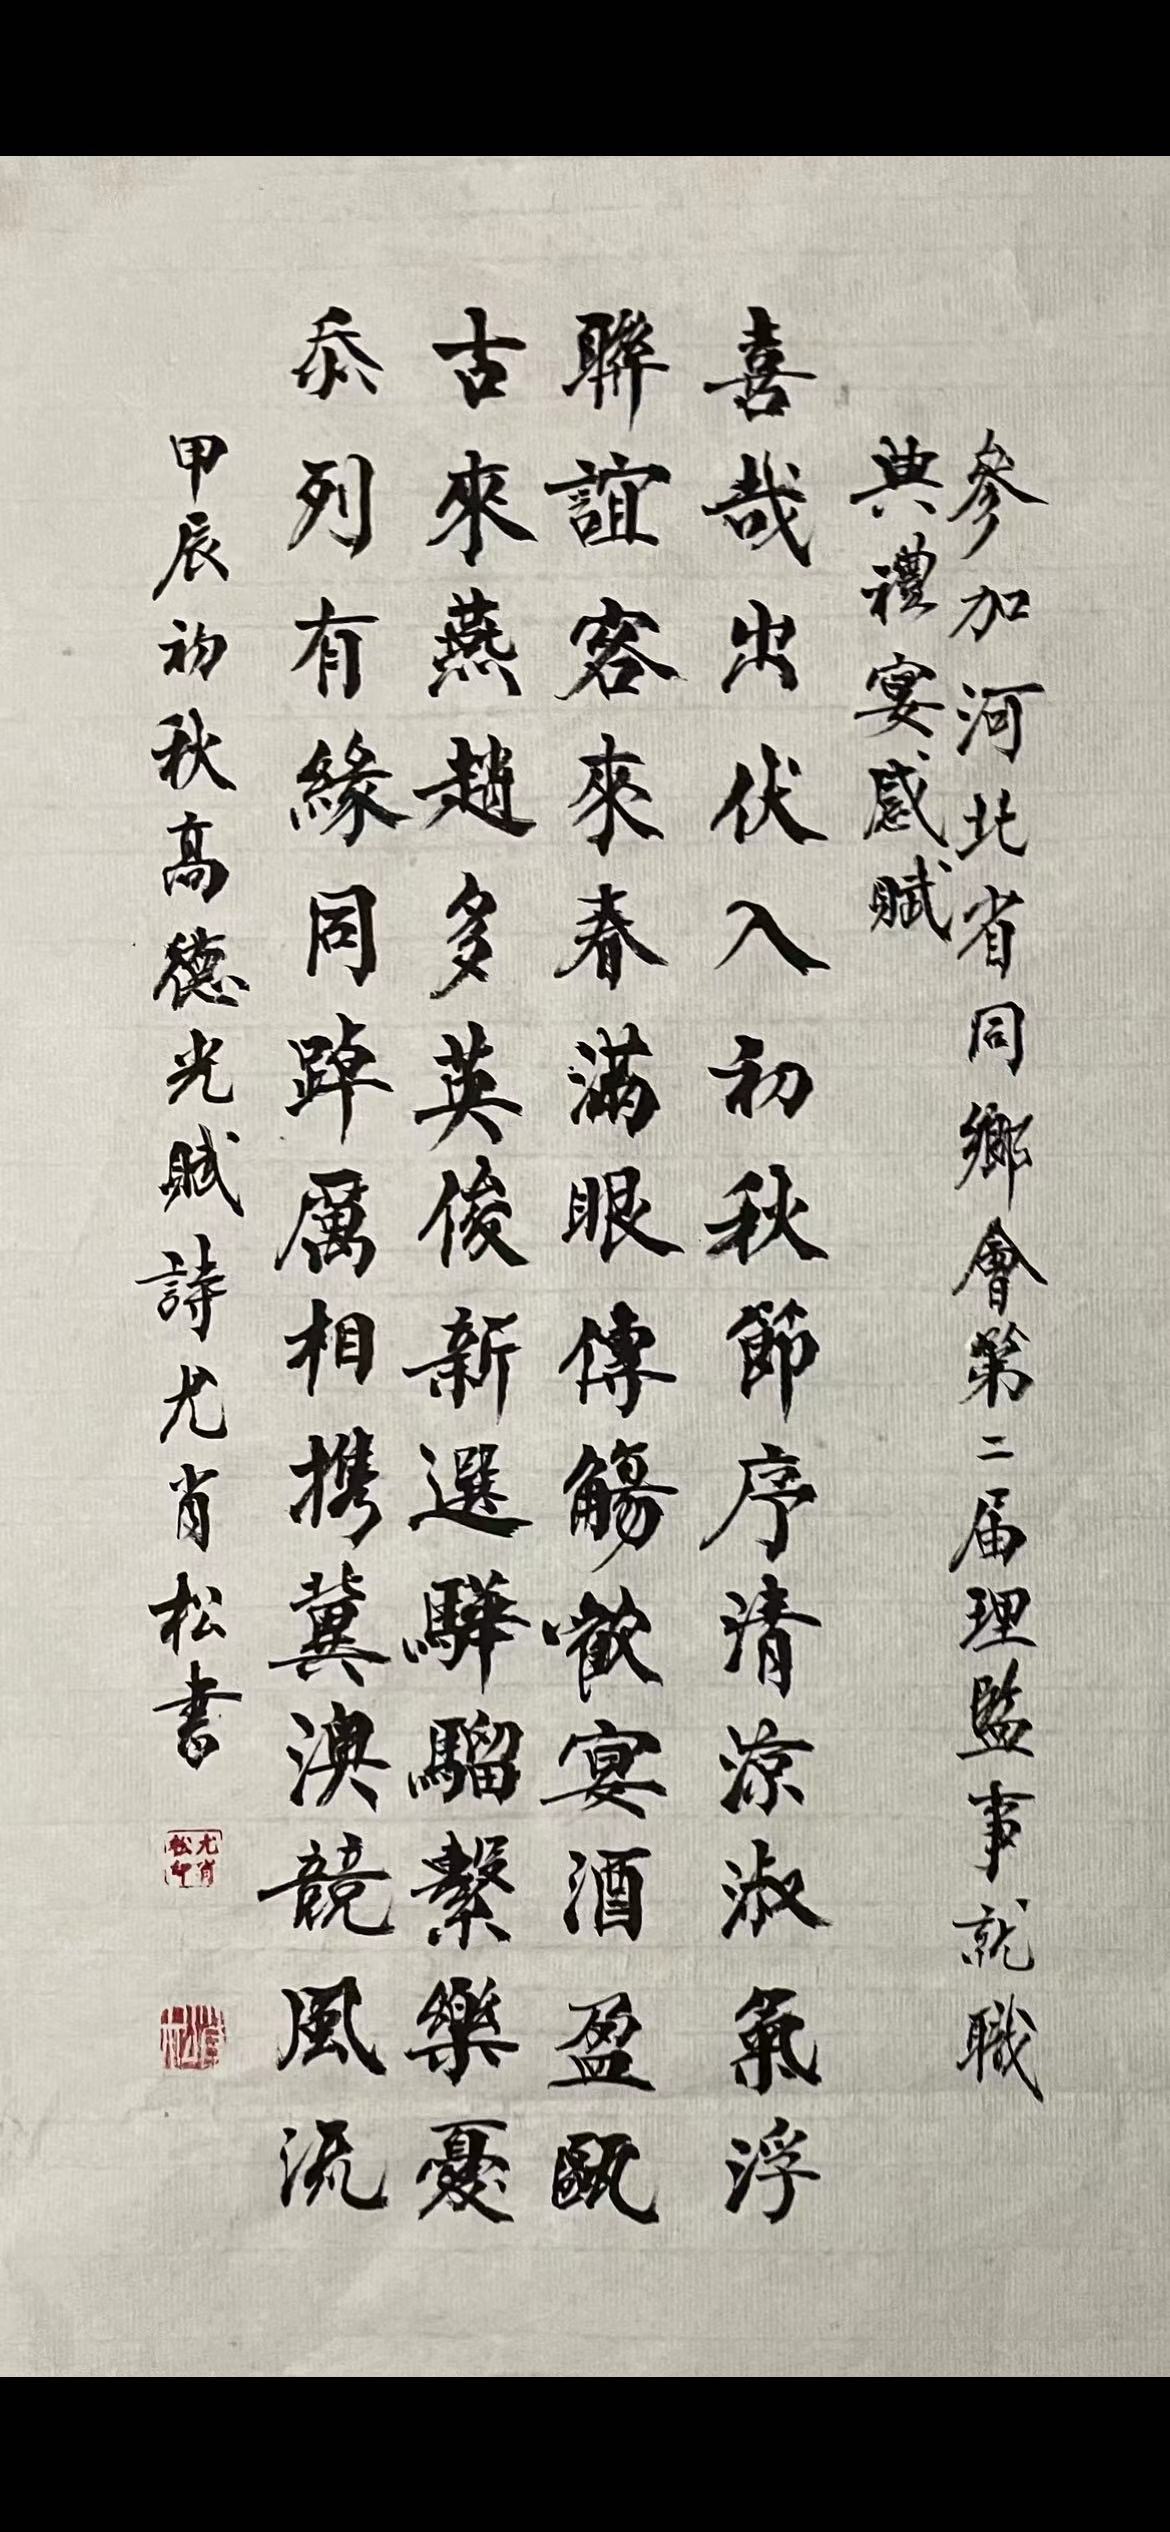 參加河北省同鄉會第二届理監事就職
典禮宴感賦
喜哉出伏入初秋節序清涼淑氣浮
聯誼客來春滿眼傳觴歡宴酒盈甌
古來燕趙多英俊新選驊騮繫樂憂
忝列有緣同踔厲相携冀澳競風流
甲辰初秋高德光賦詩尤肖松書
尤肖松印